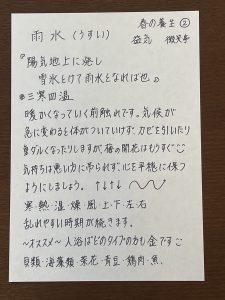 春の養生②
雨水（うすい）
益気 微笑亭
『陽気地上に発し
雪氷とけて雨水となれば也。』
※三寒四温
暖かくなっていく前触れです。気候が
急に変わると体がついていけず、カゼを引いたり
身ダルくなったりしますが、梅の開花はもうすぐ
気持ちは悪い方に吊られず、心を平穏に保つ
ようにしましょう。↑↓↑↓
寒・熱・温・燥・風・上・下・左・右
乱れやすい時期が続きます。
〜オススメ〜入浴はどのタイプの方も金です
貝類・海藻類・菜花・青豆・鶏肉・魚.